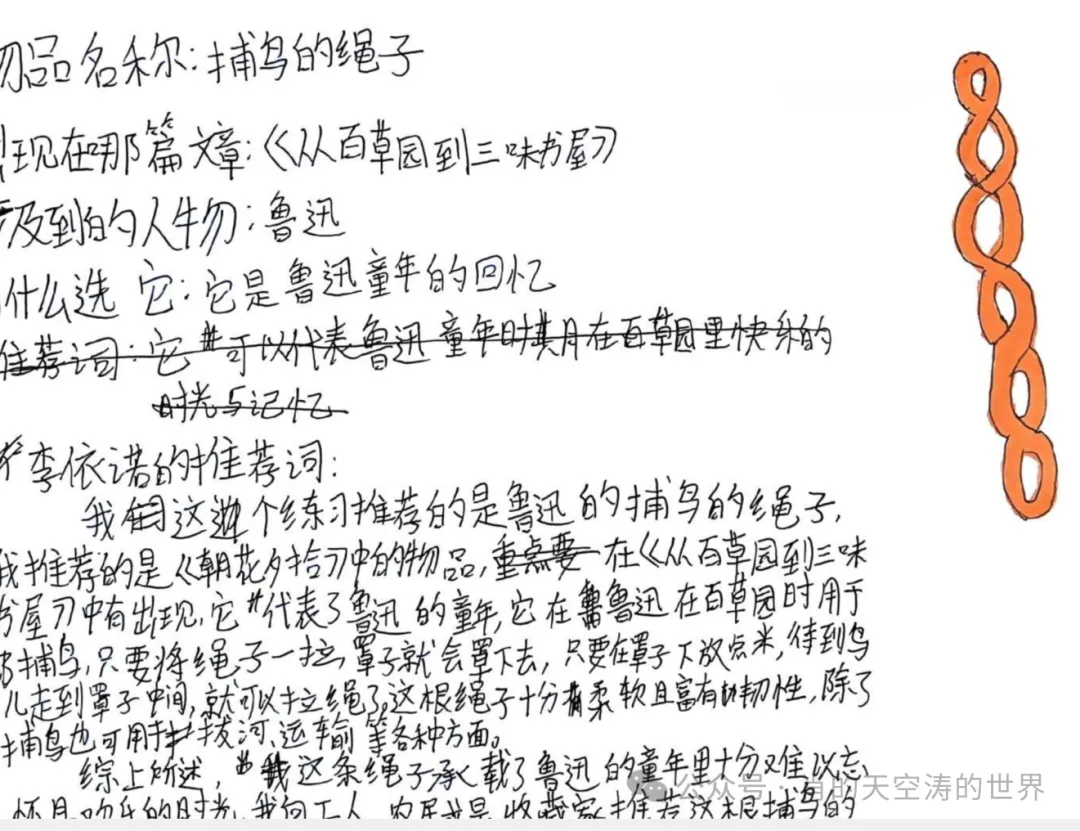 物品名称：捕鸟的绳子
出现在哪篇文章：《从百草园到三味书屋》
涉及到的人物：鲁迅
什么选 它：它是鲁迅童年的回忆
推荐词：它 可以代表鲁迅 童年时其月在百草园里快乐的
时光与记忆
李依诺的推荐词：
我 这 个练习推荐的是鲁迅 的捕鸟的绳子，
我推荐的是《朝花夕拾》中的物品，重点要 在《从百草园到三味
书屋》中有出现，它 代表了鲁迅 的童年，它在 鲁迅在百草园时用于
捕鸟，只要将绳子一拉，罩子就会罩下去，只要在罩子下放点米，待到鸟
儿走到罩子中间，就可以拉绳了，这根绳子十分 柔软且富有 韧性，除了
捕鸟也可用 拔河、运输等各种方面。
综上所述， 这条绳子承载了鲁迅的童年里十分难以忘
怀且欢乐的时光，我向工人、农民或是收藏家推荐这根捕鸟的
公众号·肖的天空涛的世界